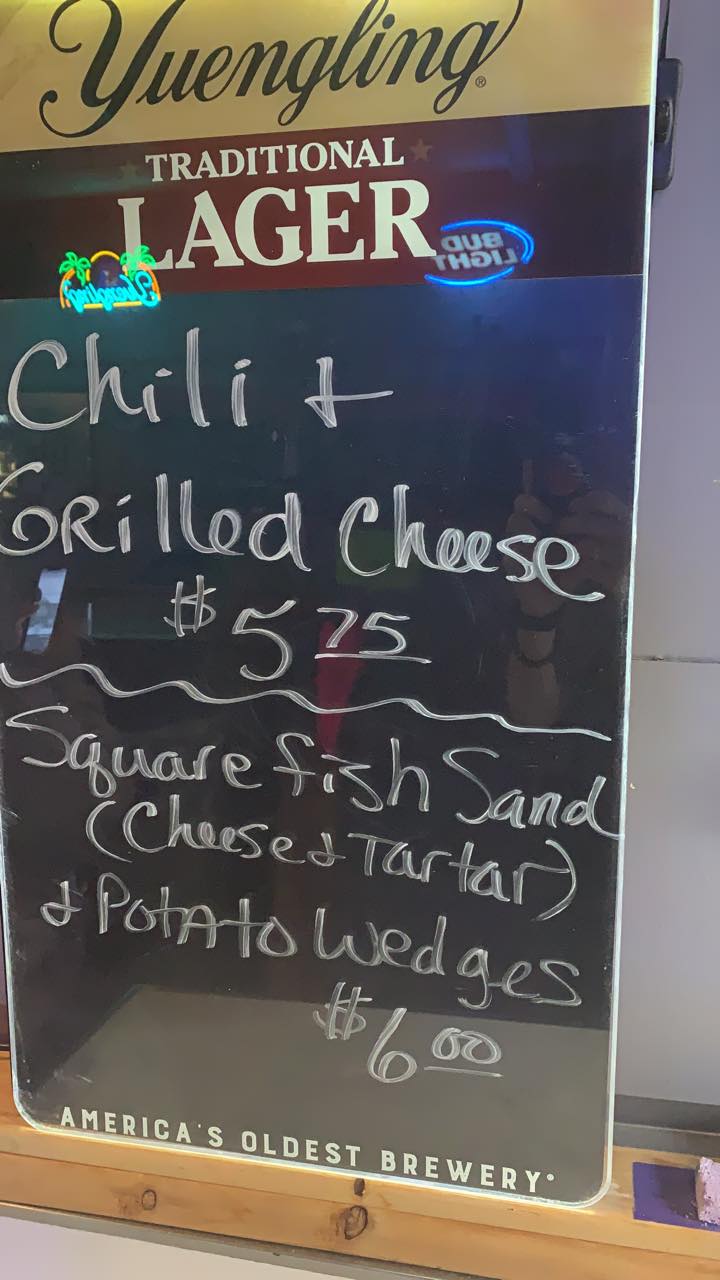 Yuengling®
TRADITIONAL
LAGER
BUD
LIGHT
Yuengling
Chili +
GRilled Cheese
$5 75
Square fish Sand
(Cheese & Tartar)
& Potato Wedges
$6 00
AMERICA'S OLDEST BREWERY®